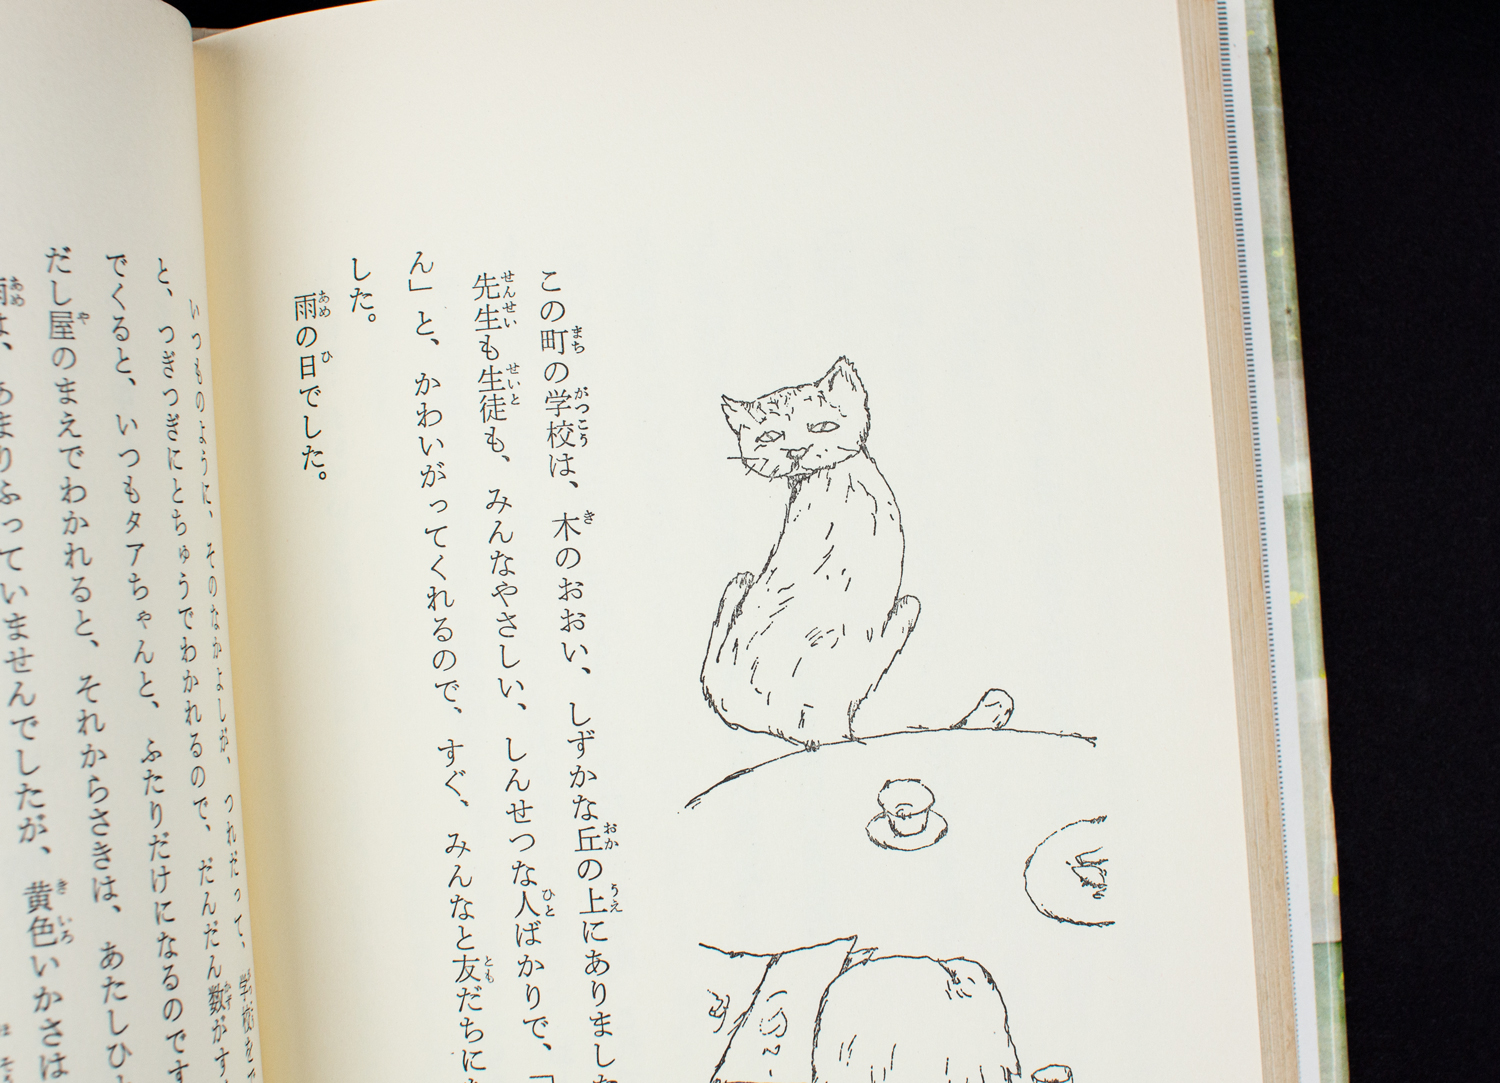 この町の学校は、木のおおい、しずかな丘の上にありました
先生も生徒も、みんなやさしい、しんせつな人ばかりで、「
ん」と、かわいがってくれるので、すぐ、みんなと友だちに
した。
雨の日でした。
いつものように、そのなかよしが、つれだって、学校を
と、つぎつぎにとちゅうでわかれるので、だんだん数がす
でくると、いつもタアちゃんと、ふたりだけになるのです
だし屋のまえでわかれると、それからさきは、あたしひ
雨は、あまりふっていませんでしたが、黄色いかさは